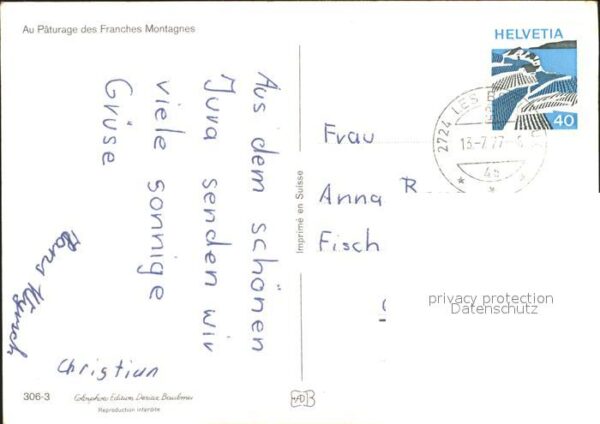 Au Pâturage des Franches Montagnes
HELVETIA
40
2724 LES B
13-7 77
Aus dem schönen
Jura senden wir
viele sonnige
Grüse
Hans
Christian
Frau
Anna R
Fisch
Imprimé en Suisse
privacy protection
Datenschutz
306-3
Colorphoto Edition Denise Baulmer
Reproduction interdite